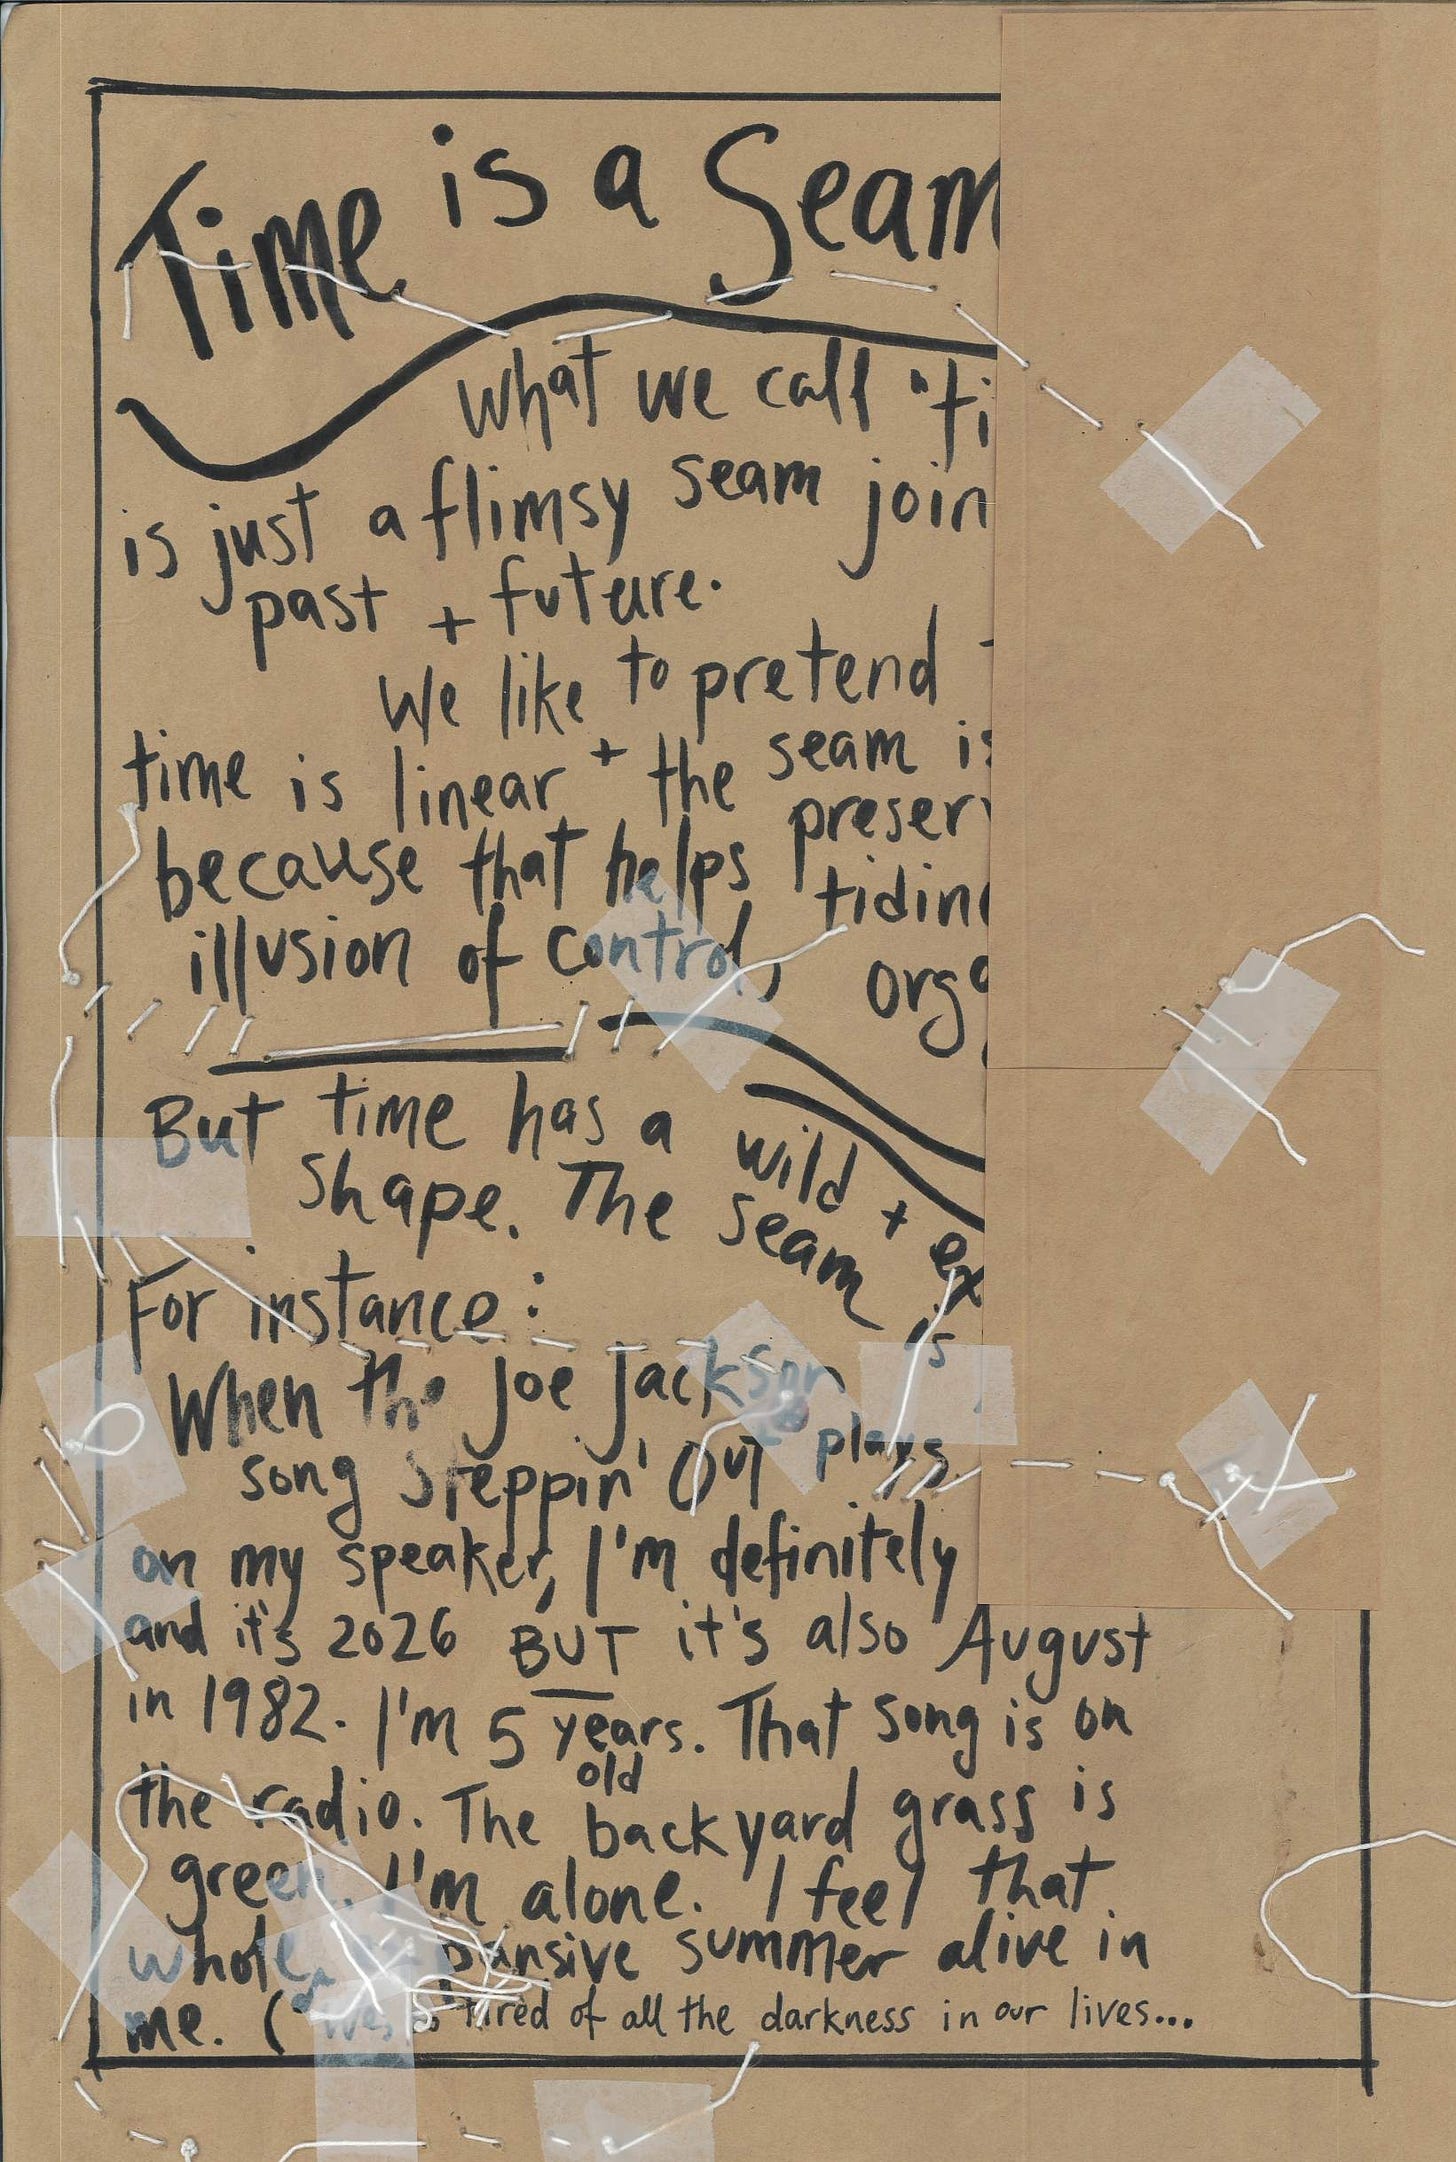 Time is a Seam
What we call "ti
is just a flimsy seam join
past + future.
We like to pretend
time is linear + the seam is
because that helps preser
illusion of control, tidin
orga
But time has a wild + ex
shape. The seam is
For instance:
When the Joe Jackson
song Steppin' Out plays
on my speaker, I'm definitely
and it's 2026 BUT it's also August
in 1982. I'm 5 years old. That song is on
the radio. The backyard grass is
green. I'm alone. I feel that
whole pansive summer alive in
me. ("We tired of all the darkness in our lives...